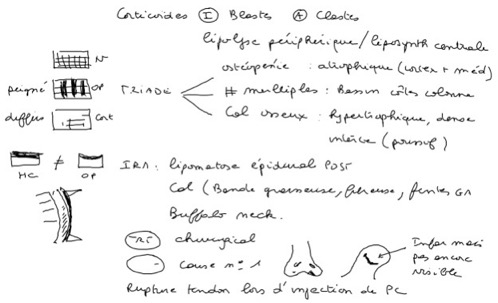 Corticoides (I) Blastes (A) Clastes
lipolyse périphérique / liposynth centrale
N
ostéopénie : atrophique (cortex + méd)
peigné OP TRIADE # multiples : Bassin côtes colonne
diffus Cort Cal osseux : hypertrophique, dense
interne (poussif)
≠ IRM : lipomatose épidural POST
HC OP Cal (Bande graisseuse, fibreuse, fentes
Buffalo neck.
chirurgical
cause n° 1
Infar mais
pas encore
visible
Rupture tendon lors d'injection de PC